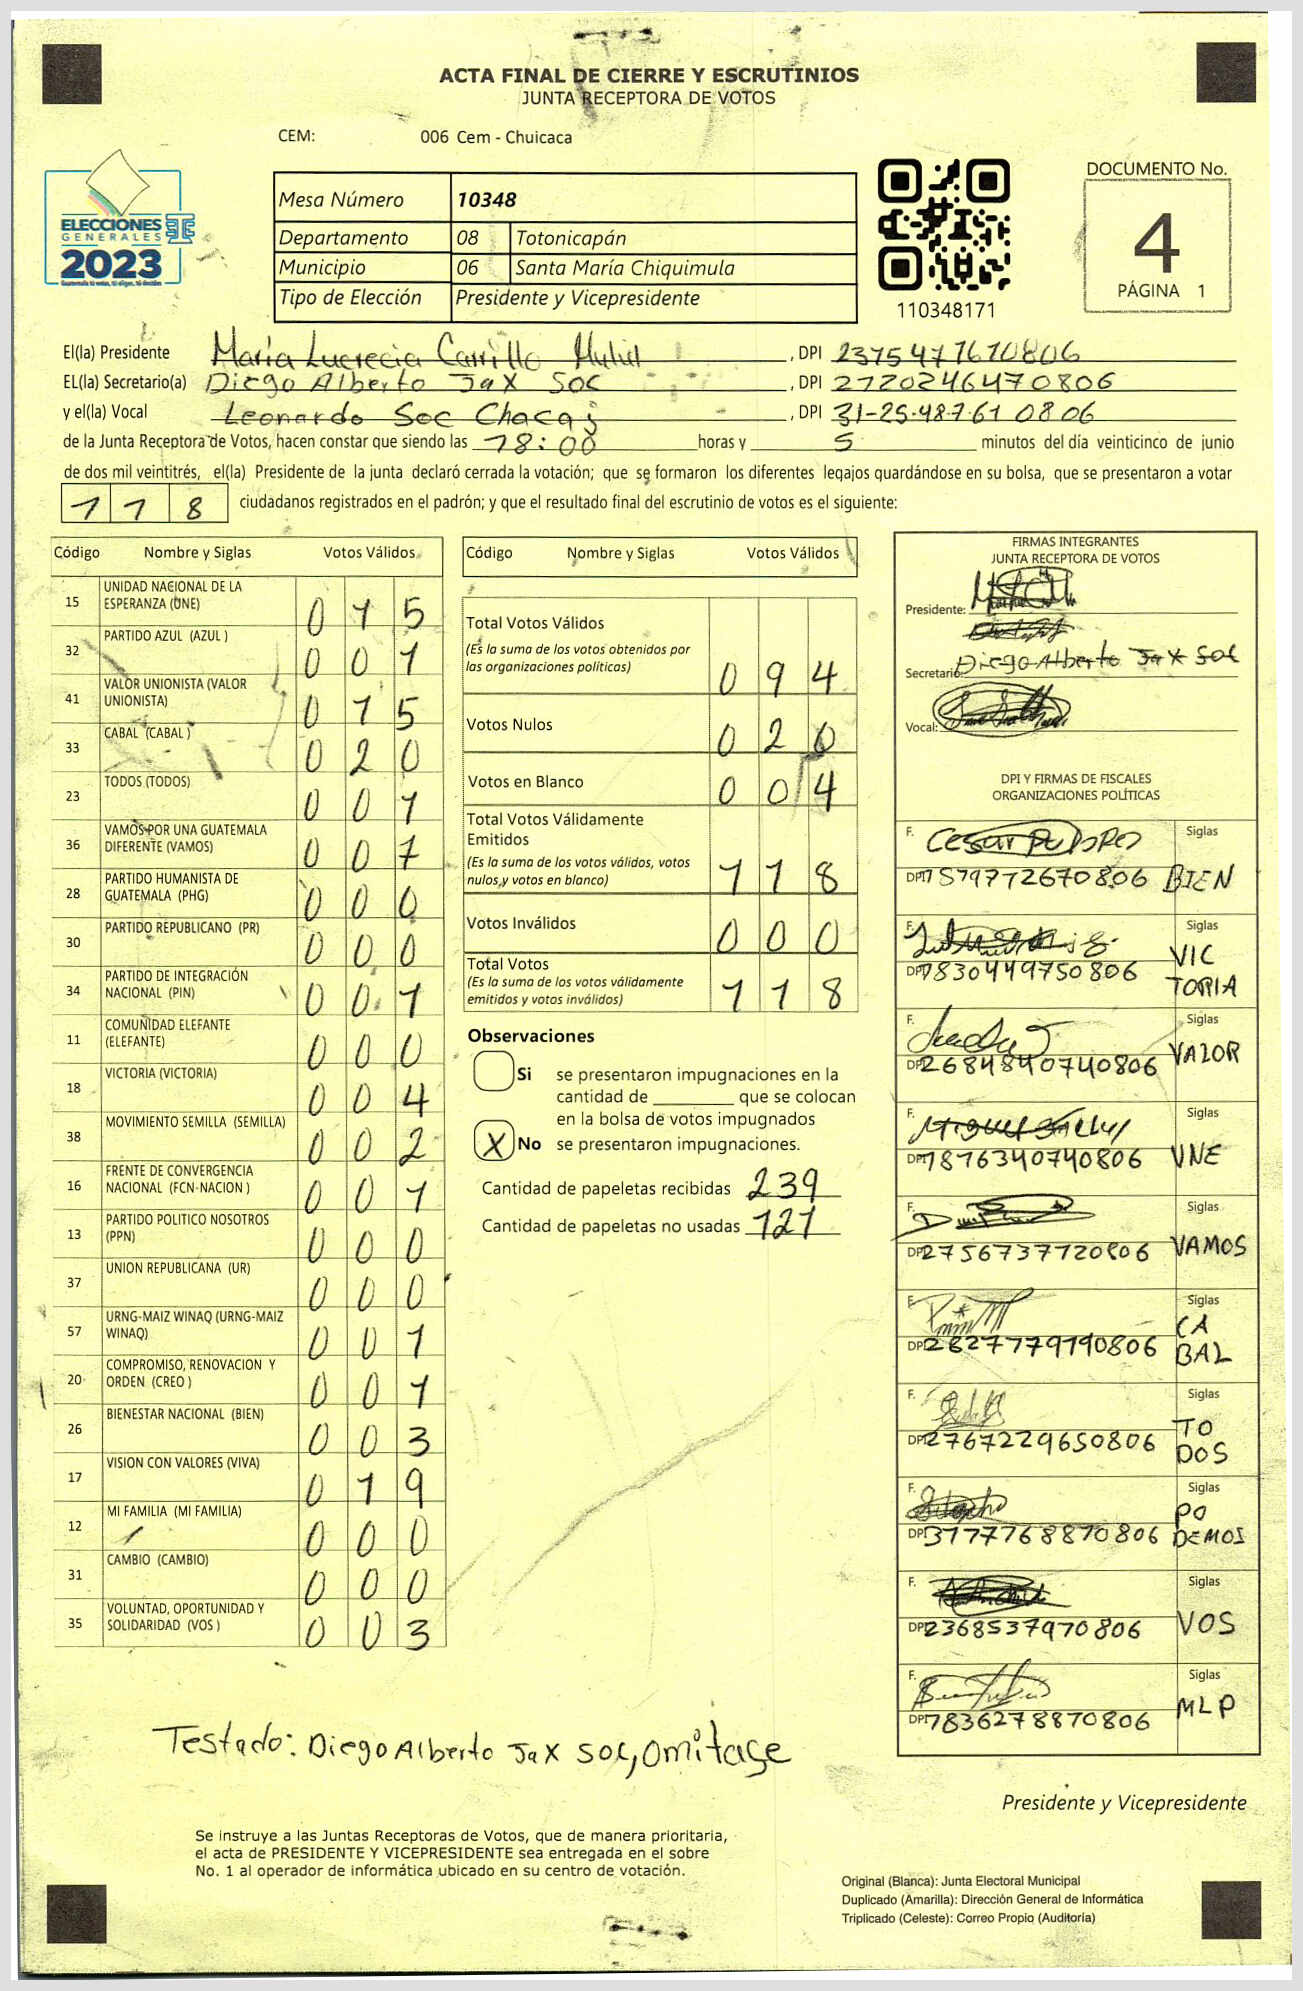 ACTA FINAL DE CIERRE Y ESCRUTINIOS
JUNTA RECEPTORA DE VOTOS
CEM: 006 Cem - Chuicaca
ELECCIONES
GENERALES
2023
Mesa Número 10348
Departamento 08 Totonicapán
Municipio 06 Santa María Chiquimula
Tipo de Elección Presidente y Vicepresidente
110348171
DOCUMENTO No.
4
PÁGINA 1
El(la) Presidente María Lucrecia Carrillo , DPI 2375471610806
EL(la) Secretario(a) Diego Alberto Jax Soc , DPI 2720246470806
y el(la) Vocal Leonardo Soc Chacaj , DPI 31-25-48761 0806
de la Junta Receptora de Votos, hacen constar que siendo las 18:00 horas y 5 minutos del día veinticinco de junio
de dos mil veintitrés, el(la) Presidente de la junta declaró cerrada la votación; que se formaron los diferentes legajos guardándose en su bolsa, que se presentaron a votar
118 ciudadanos registrados en el padrón; y que el resultado final del escrutinio de votos es el siguiente:
Código Nombre y Siglas Votos Válidos
15 UNIDAD NACIONAL DE LA ESPERANZA (UNE) 015
32 PARTIDO AZUL (AZUL ) 001
41 VALOR UNIONISTA (VALOR UNIONISTA) 015
33 CABAL (CABAL ) 020
23 TODOS (TODOS) 001
36 VAMOS POR UNA GUATEMALA DIFERENTE (VAMOS) 007
28 PARTIDO HUMANISTA DE GUATEMALA (PHG) 000
30 PARTIDO REPUBLICANO (PR) 000
34 PARTIDO DE INTEGRACIÓN NACIONAL (PIN) 001
11 COMUNIDAD ELEFANTE (ELEFANTE) 000
18 VICTORIA (VICTORIA) 004
38 MOVIMIENTO SEMILLA (SEMILLA) 002
16 FRENTE DE CONVERGENCIA NACIONAL (FCN-NACION ) 001
13 PARTIDO POLITICO NOSOTROS (PPN) 000
37 UNION REPUBLICANA (UR) 000
57 URNG-MAIZ WINAQ (URNG-MAIZ WINAQ) 001
20 COMPROMISO, RENOVACION Y ORDEN (CREO ) 001
26 BIENESTAR NACIONAL (BIEN) 003
17 VISION CON VALORES (VIVA) 019
12 MI FAMILIA (MI FAMILIA) 000
31 CAMBIO (CAMBIO) 000
35 VOLUNTAD, OPORTUNIDAD Y SOLIDARIDAD (VOS ) 003
Código Nombre y Siglas Votos Válidos
Total Votos Válidos
(Es la suma de los votos obtenidos por
las organizaciones políticas) 094
Votos Nulos 020
Votos en Blanco 004
Total Votos Válidamente
Emitidos
(Es la suma de los votos válidos, votos
nulos y votos en blanco) 118
Votos Inválidos 000
Total Votos
(Es la suma de los votos válidamente
emitidos y votos inválidos) 118
Observaciones
Si se presentaron impugnaciones en la
cantidad de ________ que se colocan
en la bolsa de votos impugnados
X No se presentaron impugnaciones.
Cantidad de papeletas recibidas 239
Cantidad de papeletas no usadas 121
FIRMAS INTEGRANTES
JUNTA RECEPTORA DE VOTOS
Presidente:
Secretario: Diego Alberto Jax Soc
Vocal:
DPI Y FIRMAS DE FISCALES
ORGANIZACIONES POLÍTICAS
F. Siglas
DPI 1579772670806 BIEN
F. Siglas
DPI 1830449750806 VICTORIA
F. Siglas
DPI 2684840740806 VALOR
F. Siglas
DPI 1876340740806 UNE
F. Siglas
DPI 2756737720806 VAMOS
F. Siglas
DPI 2827779190806 CABAL
F. Siglas
DPI 2767229650806 TODOS
F. Siglas
DPI 3177768870806 PODEMOS
F. Siglas
DPI 2368537970806 VOS
F. Siglas
DPI 1836278870806 MLP
Testado: Diego Alberto Jax Soc, Omitase
Presidente y Vicepresidente
Se instruye a las Juntas Receptoras de Votos, que de manera prioritaria,
el acta de PRESIDENTE Y VICEPRESIDENTE sea entregada en el sobre
No. 1 al operador de informática ubicado en su centro de votación.
Original (Blanca): Junta Electoral Municipal
Duplicado (Amarilla): Dirección General de Informática
Triplicado (Celeste): Correo Propio (Auditoría)